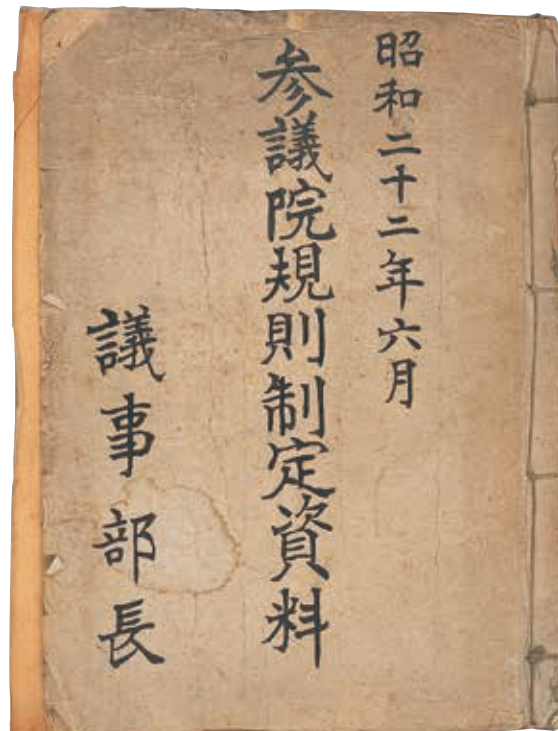 昭和二十二年六月
参議院規則制定資料
議事部長